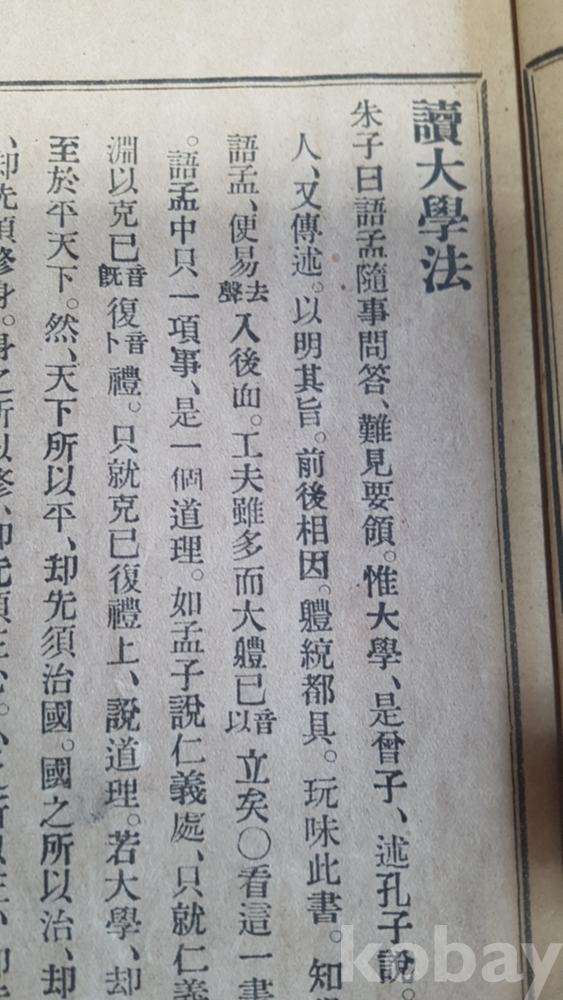 讀大學法
朱子曰語孟隨事問答、難見要領。惟大學、是曾子、述孔子說。
人、又傳述。以明其旨。前後相因。體統都具。玩味此書。知
語孟、便易去聲入後面。工夫雖多而大體已音以立矣○看這一書
。語孟中只一項事、是一個道理。如孟子說仁義處、只就仁義
淵以克已音旣復音卜禮。只就克已復禮上、說道理。若大學、却
至於平天下。然、天下所以平、却先須治國。國之所以治、却
、却先須修身。身之所以修、却先須正心。心之所以正、却先
kobay